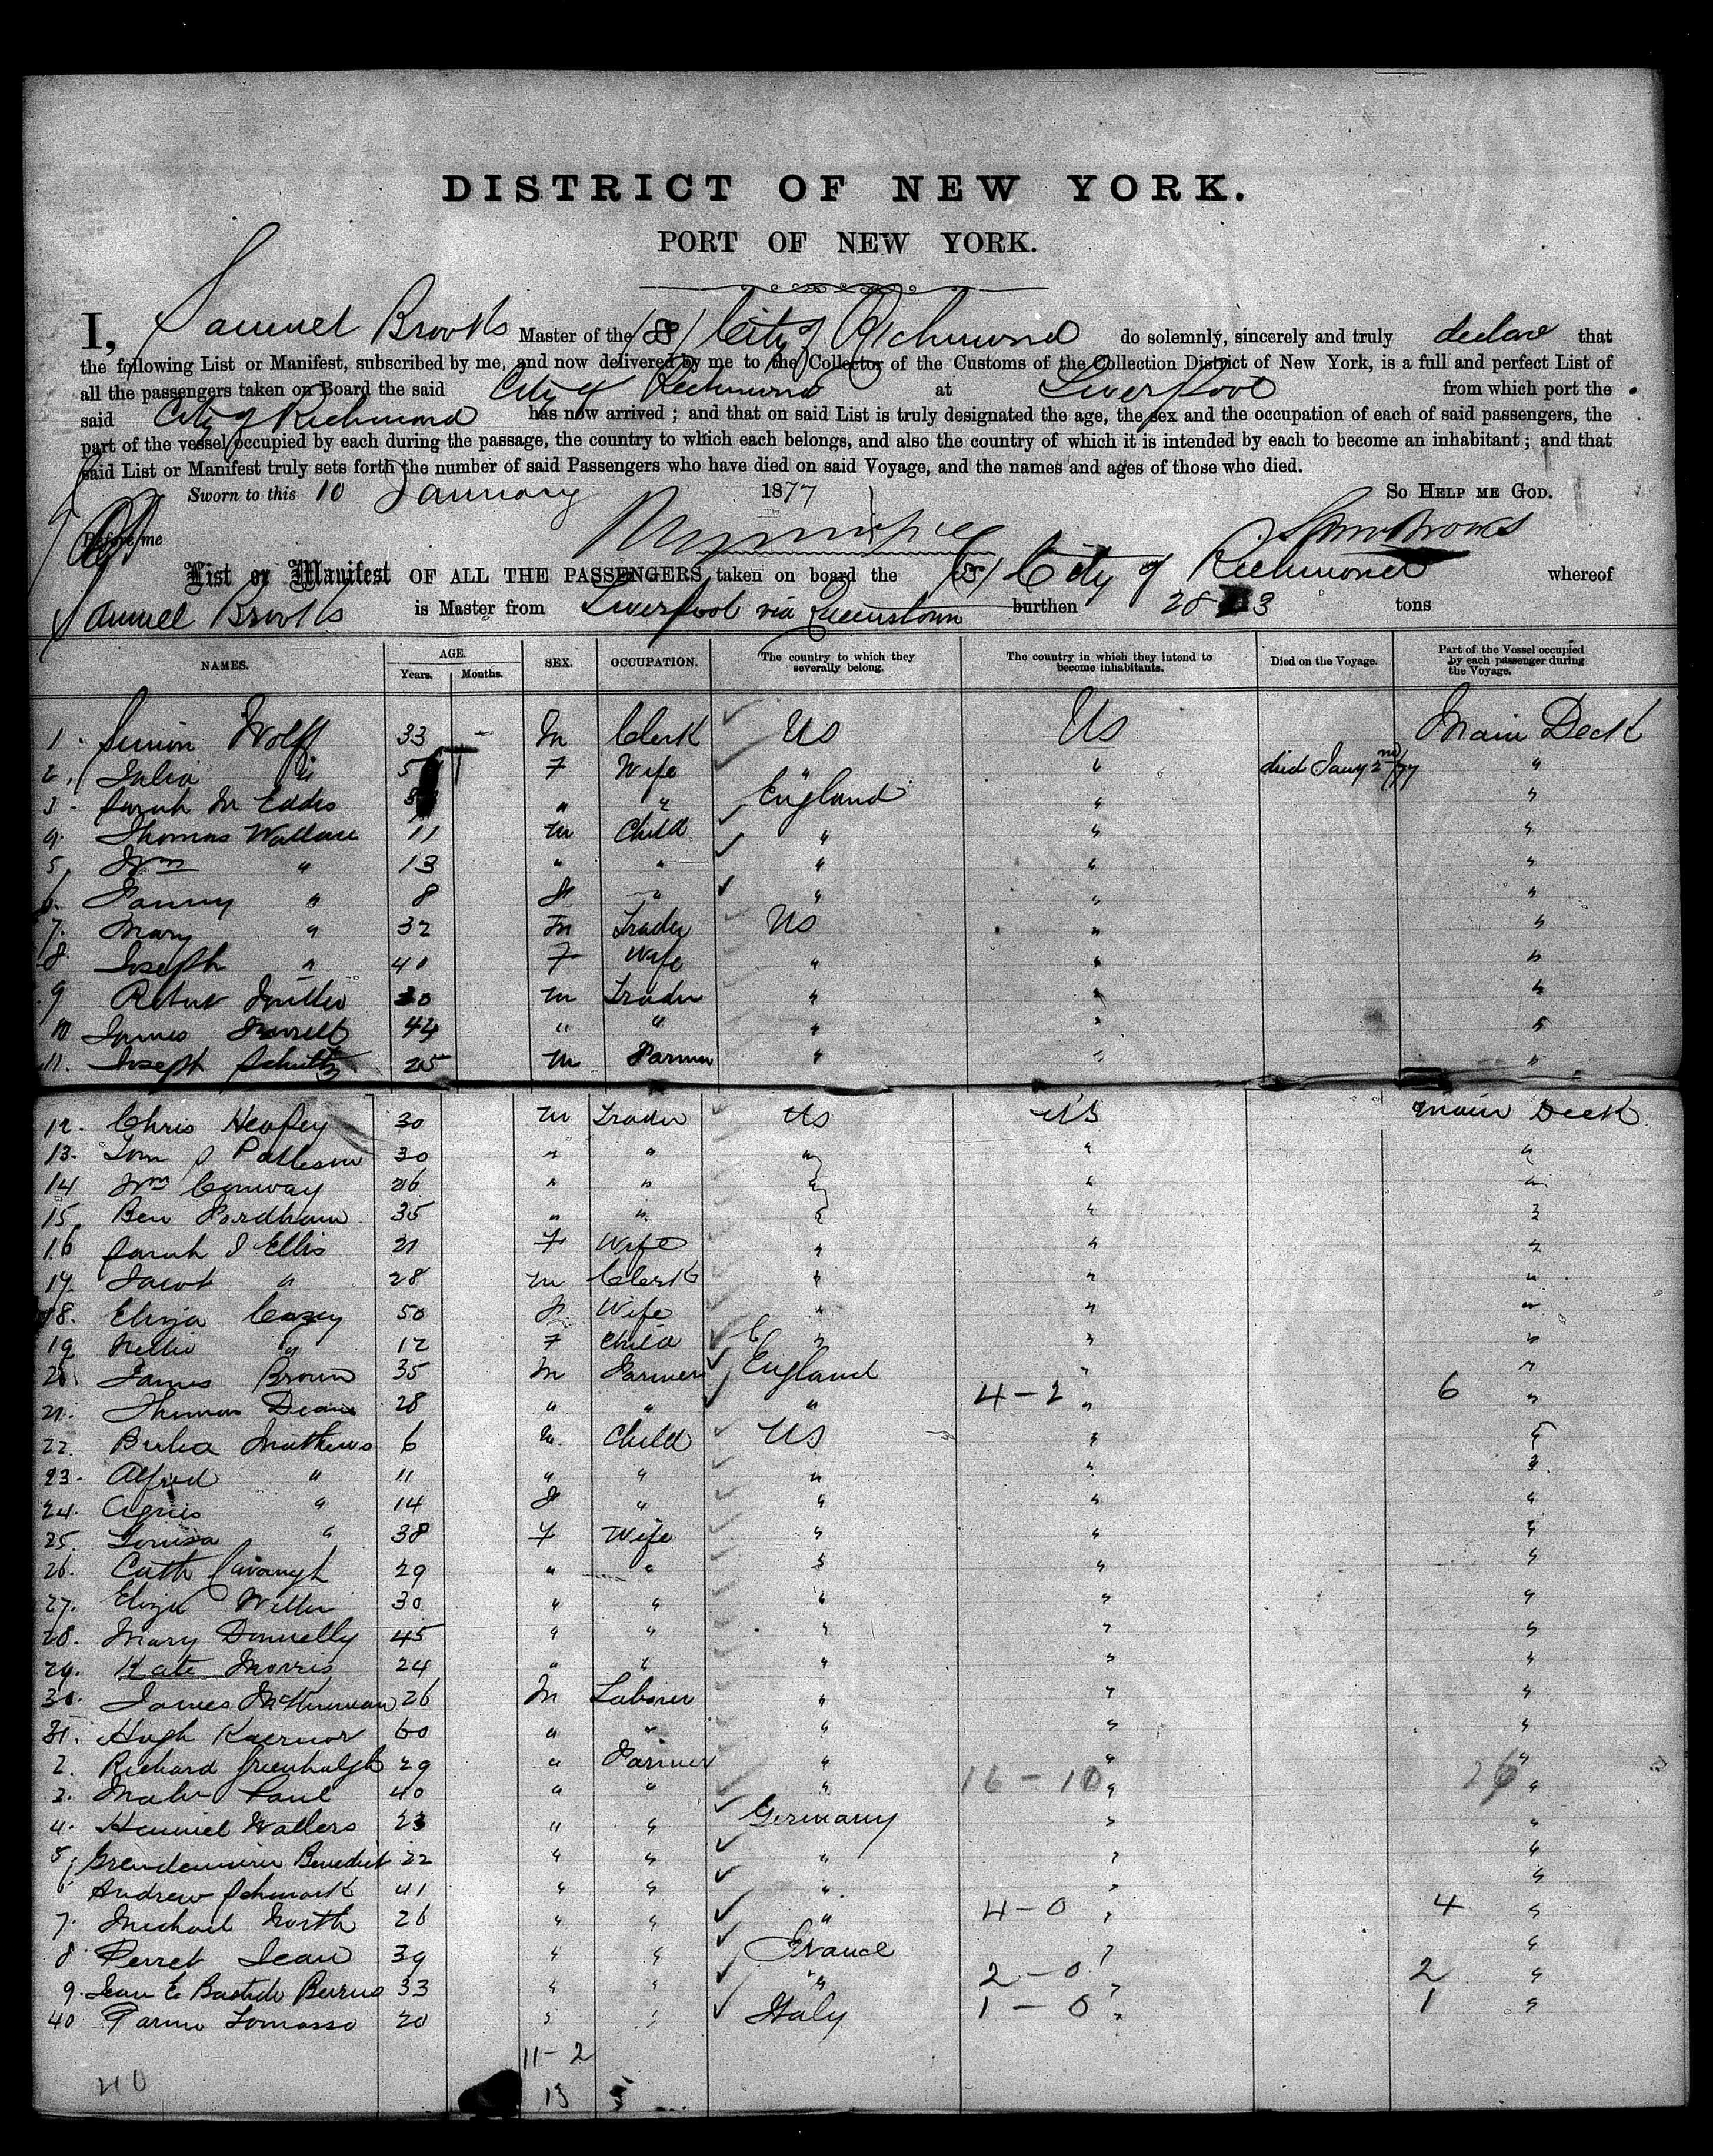 DISTRICT OF NEW YORK.
PORT OF NEW YORK.
I, Samuel Brooks Master of the (SS) City of Richmond do solemnly, sincerely and truly declare that
the following List or Manifest, subscribed by me, and now delivered by me to the Collector of the Customs of the Collection District of New York, is a full and perfect List of
all the passengers taken on Board the said City of Richmond at Liverpool from which port the
said City of Richmond has now arrived; and that on said List is truly designated the age, the sex and the occupation of each of said passengers, the
part of the vessel occupied by each during the passage, the country to which each belongs, and also the country of which it is intended by each to become an inhabitant; and that
said List or Manifest truly sets forth the number of said Passengers who have died on said Voyage, and the names and ages of those who died.
Sworn to this 10 January 1877 So Help me God.
Before me Saml Brooks
List or Manifest OF ALL THE PASSENGERS taken on board the (SS) City of Richmond whereof
Samuel Brooks is Master from Liverpool via Queenstown burthen tons
NAMES. AGE. Years. Months. SEX. OCCUPATION. The country to which they severally belong. The country in which they intend to become inhabitants. Died on the Voyage. Part of the Vessel occupied by each passenger during the Voyage.
1. Simon Wolff 33 - M Clerk US US Main Deck
2. Julia " F Wife " " died Jany 2nd/77 "
3. Sarah M Eddis " " England " "
4. Thomas Wallace 11 M Child " " "
5. Wm " 13 " " " " "
6. Fanny " 8 F " " " "
7. Mary " 32 M Trader US " "
8 Joseph " 40 F Wife " " "
9 Robert 30 M Trader " " "
10 James 44 " " " " "
11. Joseph Schultz 25 M Farmer " " "
12. Chris Heapey 30 M Trader US US Main Deck
13. Tom J Patteson 30 " " " " "
14 Wm Conway 26 " " " " "
15. Ben Fordham 35 " " " " "
16 Sarah J Ellis 21 F Wife " " "
17. Jacob " 28 M Clerk " " "
18. Eliza Casey 50 F Wife " " "
19 Nellie " 12 F Child " " "
20. James Brown 35 M Farmer England " "
21. Thomas Deane 28 " " " 4-2 " 6 "
22. Mathews 6 M Child US " "
23. Alfred " 11 " " " " "
24. Agnes " 14 F " " " "
25. Louisa " 38 F Wife " " "
26. Cath Cavanagh 29 " " " " "
27. Eliza Willis 30 " " " " "
28. Mary Donnelly 45 " " " " "
29. Kate Morris 24 " " " " "
30. James McKiernan 26 M Laborer " " "
31. Hugh 60 " " " " "
2. Richard Greenhalgh 29 " Farmer " " "
3. Paul 40 " " " 16-10 " 26 "
4. Wallers 23 " " Germany " "
5. Benedict 22 " " " " "
Andrew Schwartz 41 " " " " "
7. Michael North 26 " " " 4-0 " 4 "
8 Perret Jean 39 " " France " "
9. Jean E Bastide 33 " " " 2-0 " 2 "
40 Parmo Tomasso 20 " " Italy 1-0 " 1 "
11-2
40 13